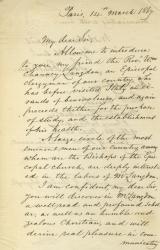 Paris, 14th March 1867
My dear Sir,
Allow me to introduce
to you, my friend the Rev. Wm
Chauncy Langdon, an Episcopal
Clergyman of our country, who
has before visited Italy as
and now again
proceeds thither for the purpose
of study, and the establishment
of his health.
A large circle of the most
eminent men of our country among
whom are the Bishops of the Epis-
copal Church, are deeply interested
in the labors of Mr Langdon.
I am confident, my dear Sir,
you will discover in Mr Langdon,
a well-read and profound schol-
ar, as well as an humble and
zealous Christian, and will
derive real pleasure in com-